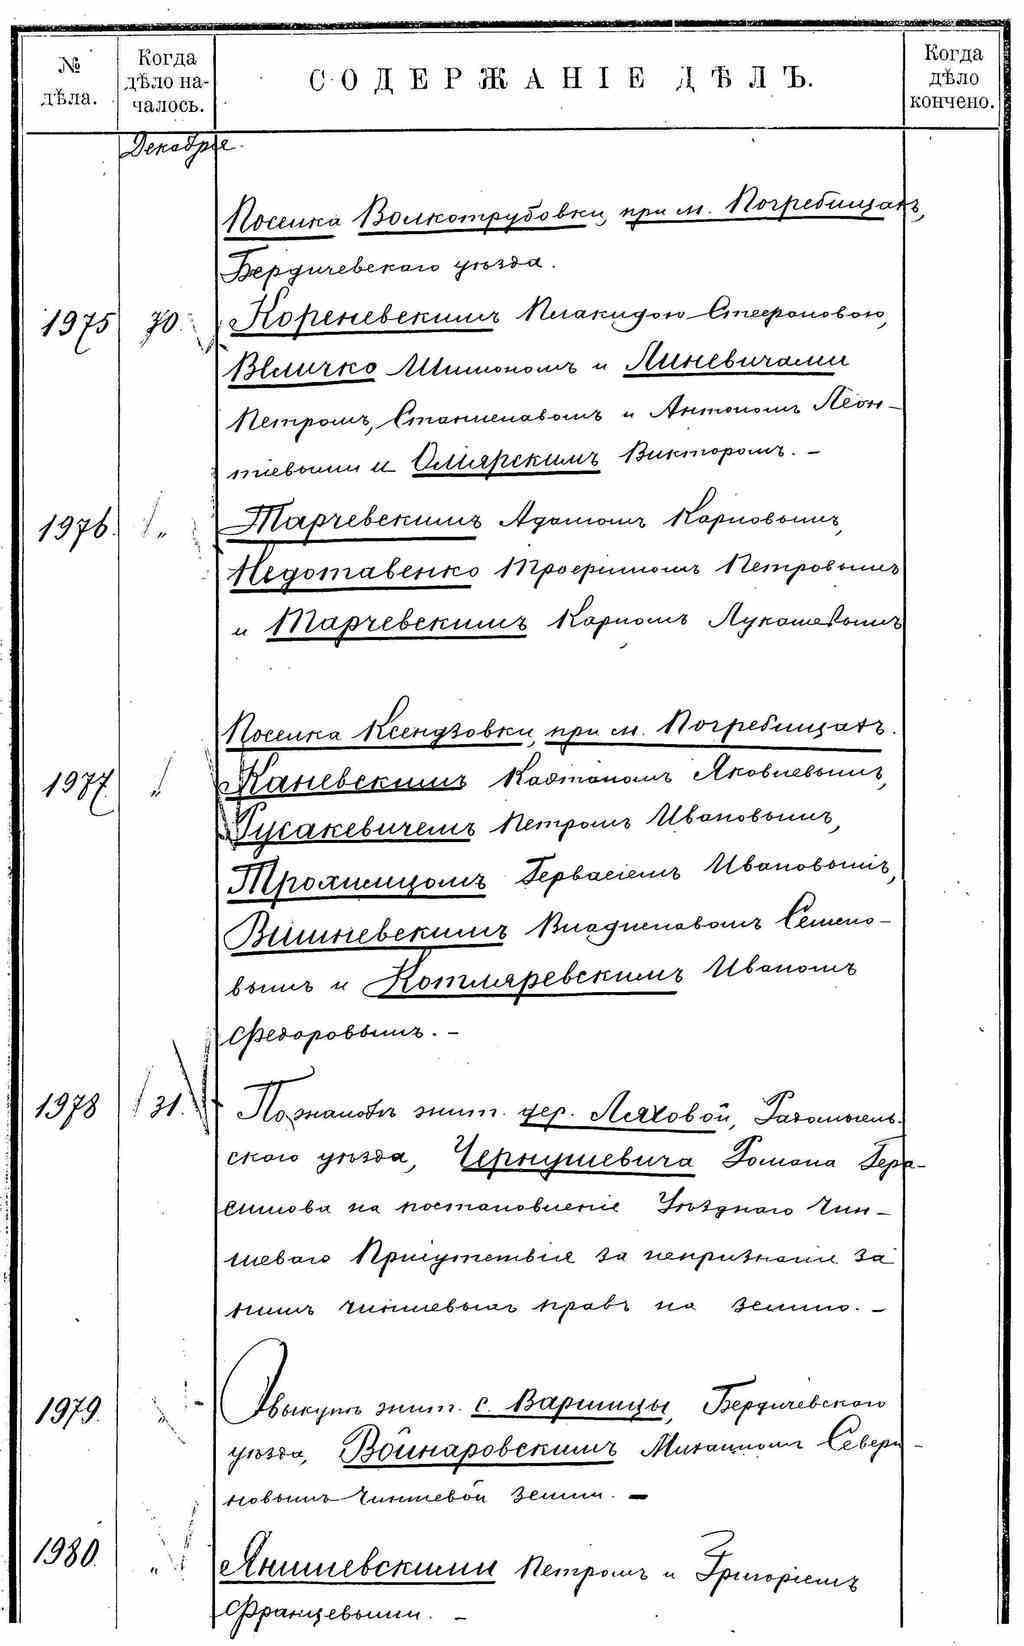 № дѣла.
Когда дѣло на-чалось.
СОДЕРЖАНІЕ ДѢЛЪ.
Когда дѣло кончено.
Декабрѣ.
Поселка Волкотрубовки, при м. Погребищахъ,
Бердичевскаго уѣзда.
1975 30. Кореневскимъ Плакидою Стефановою,
Величко Шимономъ и Линевичами
Петромъ, Станиславомъ и Антономъ Леон-
тіевыми и Олиярскимъ Викторомъ. –
1976. " Тарчевскимъ Адамомъ Карповымъ,
Недотавенко Трофимомъ Петровымъ
и Тарчевскимъ Карпомъ Лукашевымъ
Поселка Ксендзовки, при м. Погребищахъ.
1977. " Каневскимъ Каэтаномъ Яковлевымъ,
Русакевичемъ Петромъ Ивановымъ,
Трохимцомъ Гервасіемъ Ивановымъ,
Вишневскимъ Владиславомъ Семено-
вымъ и Котляревскимъ Иваномъ
Федоровымъ. –
1978 31. По жалобѣ жит. дер. Ляховой, Радомысль-
скаго уѣзда, Чернушевича Романа Гера-
симова на постановленіе Уѣзднаго Чин-
шеваго Присутствія за непризнаніе за
нимъ чиншевыхъ правъ на землю. –
1979. " О выкупѣ жит. с. Варшицы, Бердичевскаго
уѣзда, Войнаровскимъ Михаиломъ Севери-
новымъ чиншевой земли. –
1980. " Янишевскими Петромъ и Григоріемъ
Францевыми. –